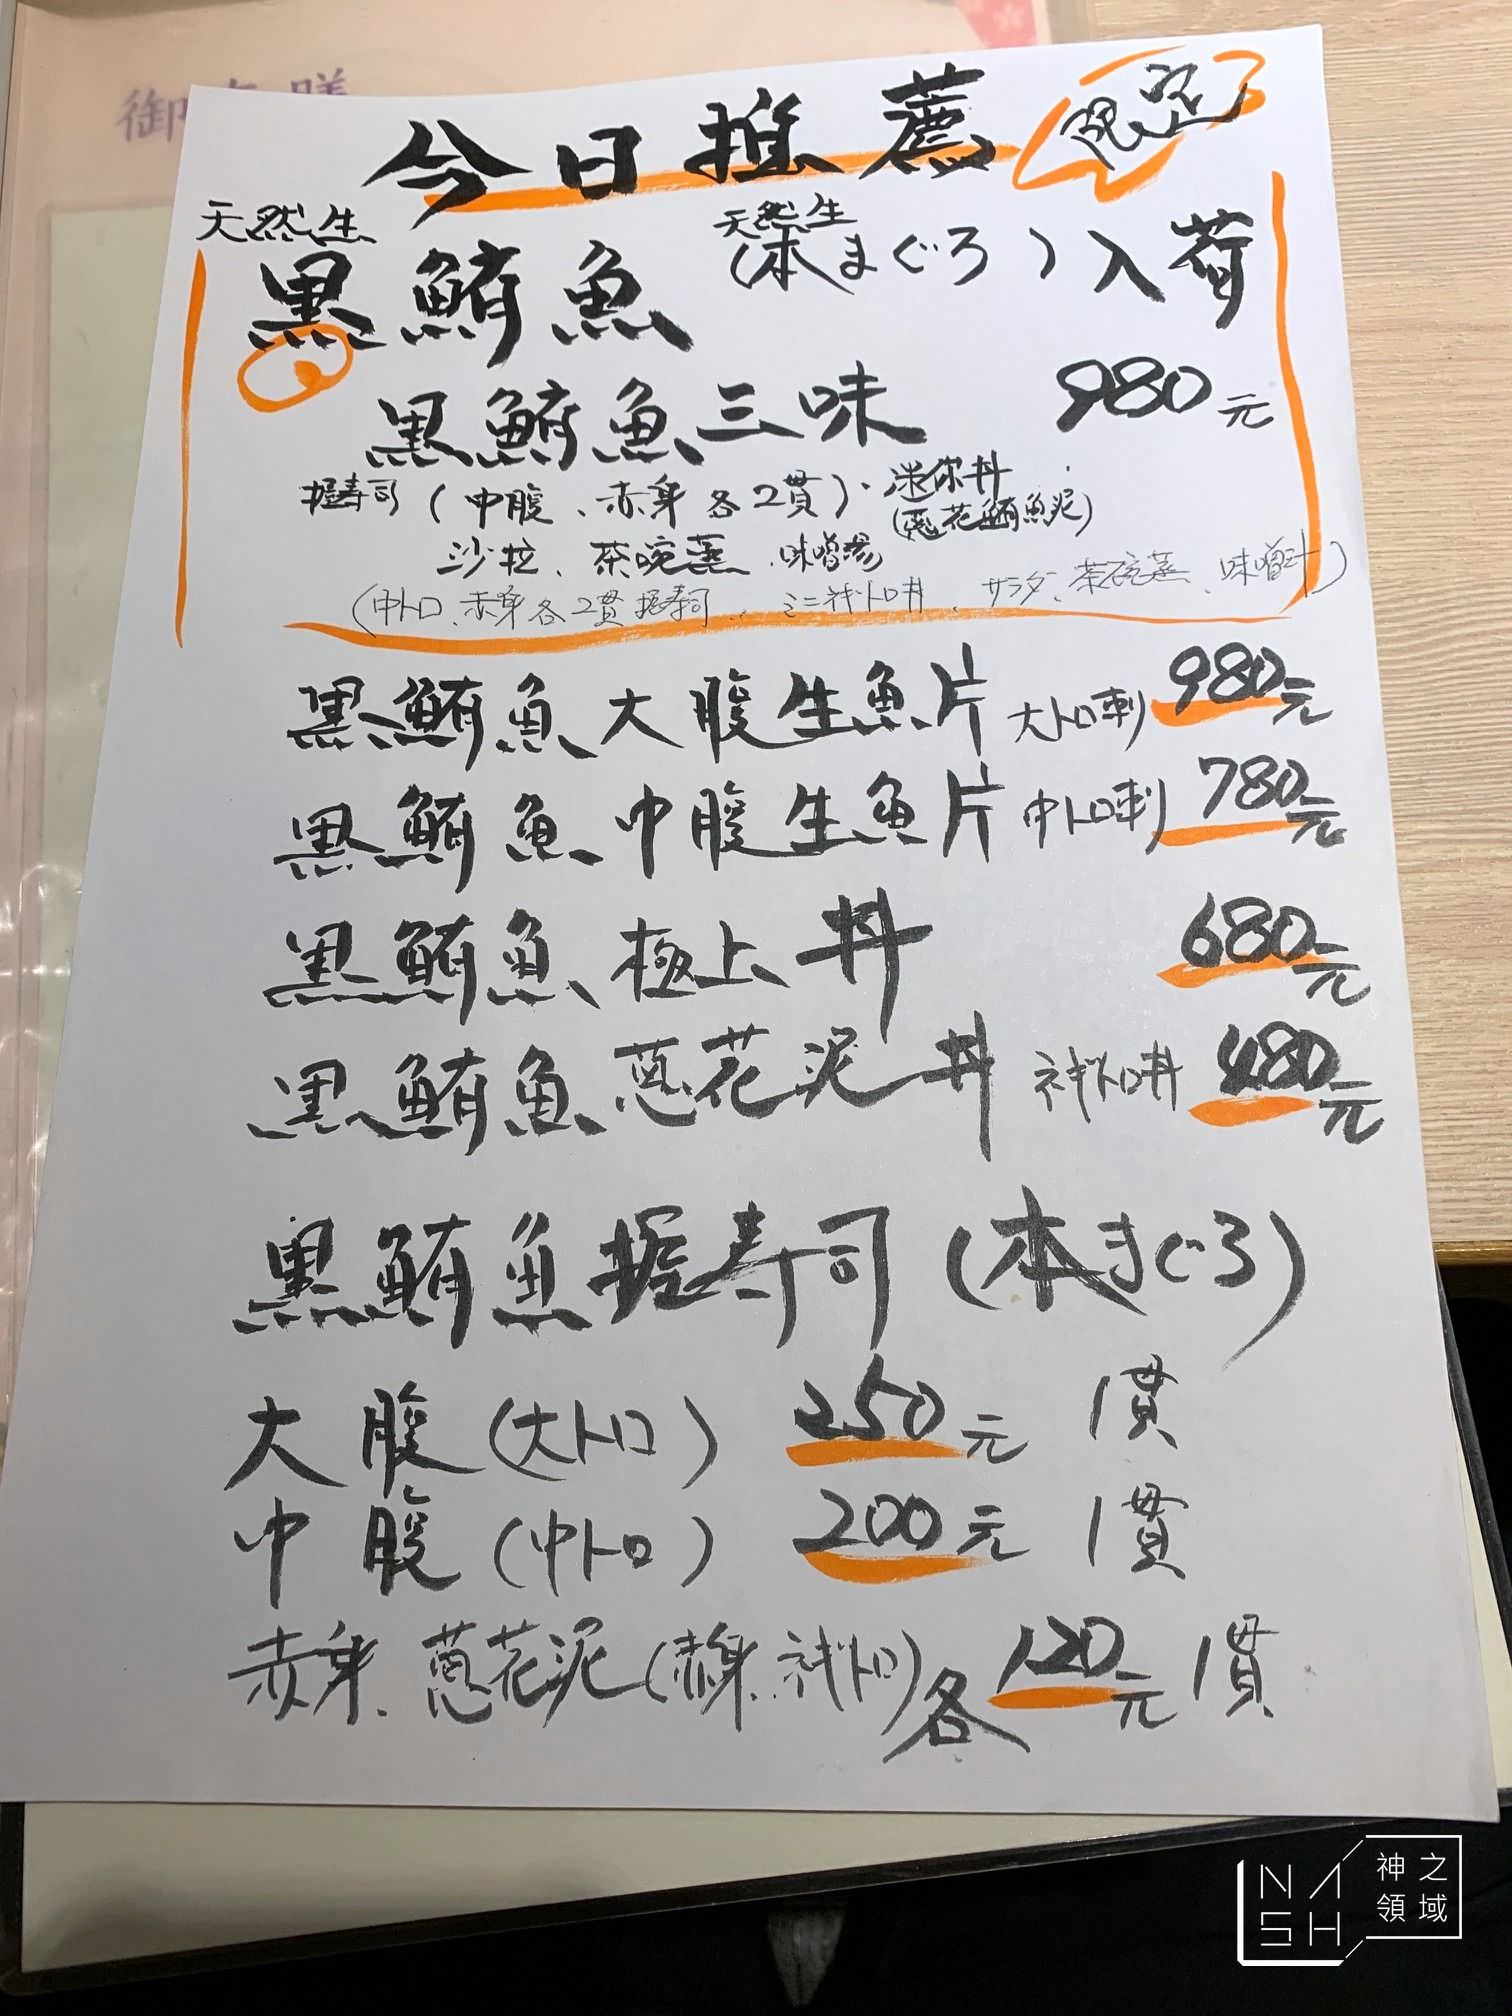 今日推薦 限定
天然生 天然生
黑鮪魚 (本まぐろ) 入荷
黑鮪魚三味 980元
握寿司 (中腹、赤身各2貫)、迷你丼
(葱花鮪魚泥)
沙拉、茶碗蒸、味噌湯
(中トロ、赤身各2貫握寿司、ミニネギトロ丼、サラダ、茶碗蒸、味噌汁)
黑鮪魚大腹生魚片 大トロ刺 980元
黑鮪魚中腹生魚片 中トロ刺 780元
黑鮪魚極上丼 680元
黑鮪魚葱花泥丼 ネギトロ丼 480元
黑鮪魚握寿司 (本まぐろ)
大腹 (大トロ) 250元 1貫
中腹 (中トロ) 200元 1貫
赤身、葱花泥 (赤身、ネギトロ) 各120元 1貫
NASH 神之領域